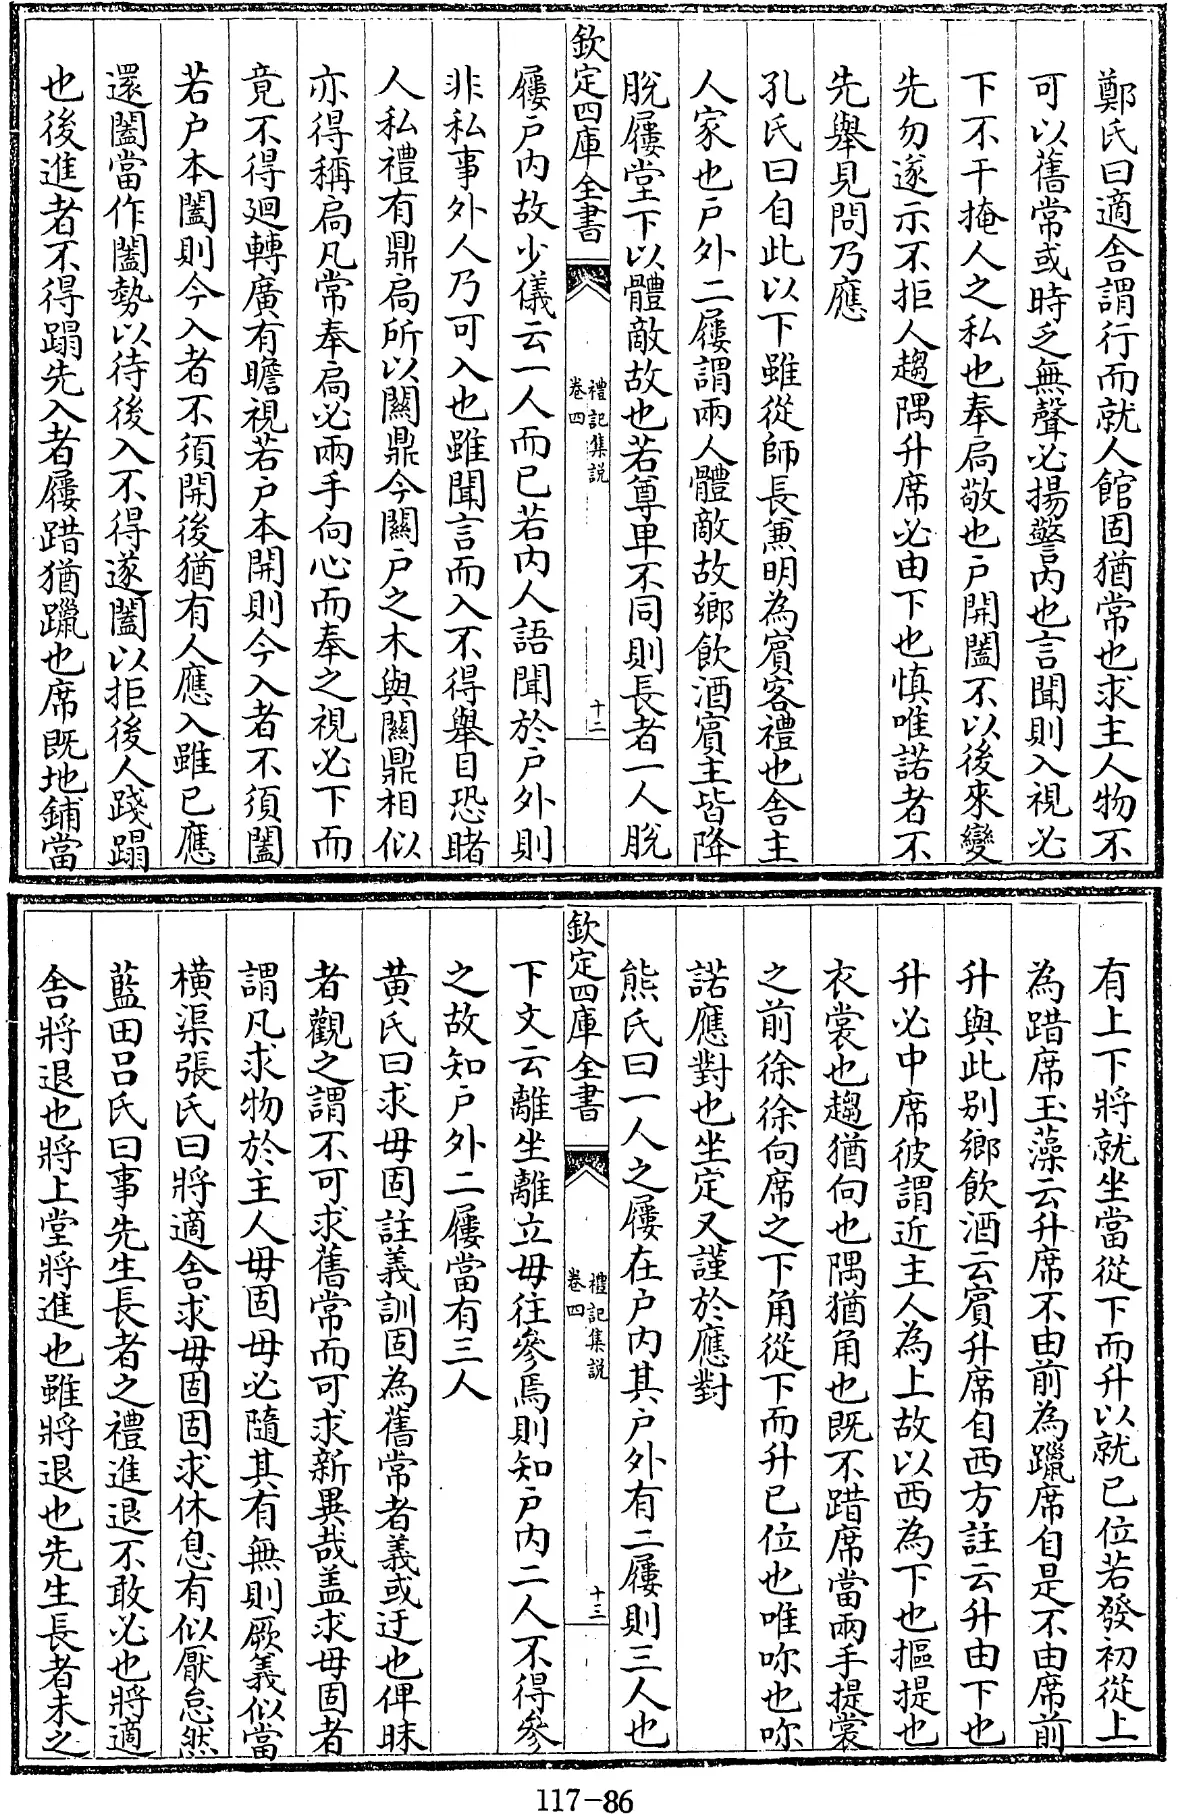 鄭氏曰適舍謂行而就人館固猶常也求主人物不
可以舊常或時乏無聲必揚警内也言聞則入視必
下不干掩人之私也奉扃敬也户開闔不以後來變
先勿遂示不拒人趨隅升席必由下也慎唯諾者不
先舉見問乃應
孔氏曰自此以下雖從師長兼明為賓客禮也舍主
人家也户外二屨謂兩人體敵故鄉飲酒賓主皆降
脱屨堂下以體敵故也若尊卑不同則長者一人脱
欽定四庫全書
禮記集說
卷四
十二
屨户内故少儀云一人而已若内人語聞於户外則
非私事外人乃可入也雖聞言而入不得舉目恐睹
人私禮有鼎扃所以關鼎今關户之木與關鼎相似
亦得稱扃凡常奉扃必兩手向心而奉之視必下而
竟不得廻轉廣有瞻視若户本開則今入者不須闔
若户本闔則今入者不須開後猶有人應入雖已應
還闔當作闔勢以待後入不得遂闔以拒後人踐蹋
也後進者不得蹋先入者屨踖猶躐也席既地鋪當
有上下將就坐當從下而升以就己位若發初從上
為踖席玉藻云升席不由前為躐席自是不由席前
升與此别鄉飲酒云賓升席自西方註云升由下也
升必中席彼謂近主人為上故以西為下也摳提也
衣裳也趨猶向也隅猶角也既不踖席當兩手提裳
之前徐徐向席之下角從下而升己位也唯吪也吪
諾應對也坐定又謹於應對
熊氏曰一人之屨在户内其户外有二屨則三人也
欽定四庫全書
禮記集說
卷四
十三
下文云離坐離立毋往參焉則知户内二人不得參
之故知户外二屨當有三人
黄氏曰求毋固註義訓固為舊常者義或迂也俾昧
者觀之謂不可求舊常而可求新異哉盖求毋固者
謂凡求物於主人毋固毋必隨其有無則厥義似當
横渠張氏曰將適舍求毋固固求休息有似厭怠然
藍田吕氏曰事先生長者之禮進退不敢必也將適
舍將退也將上堂將進也雖將退也先生長者未之
117-86